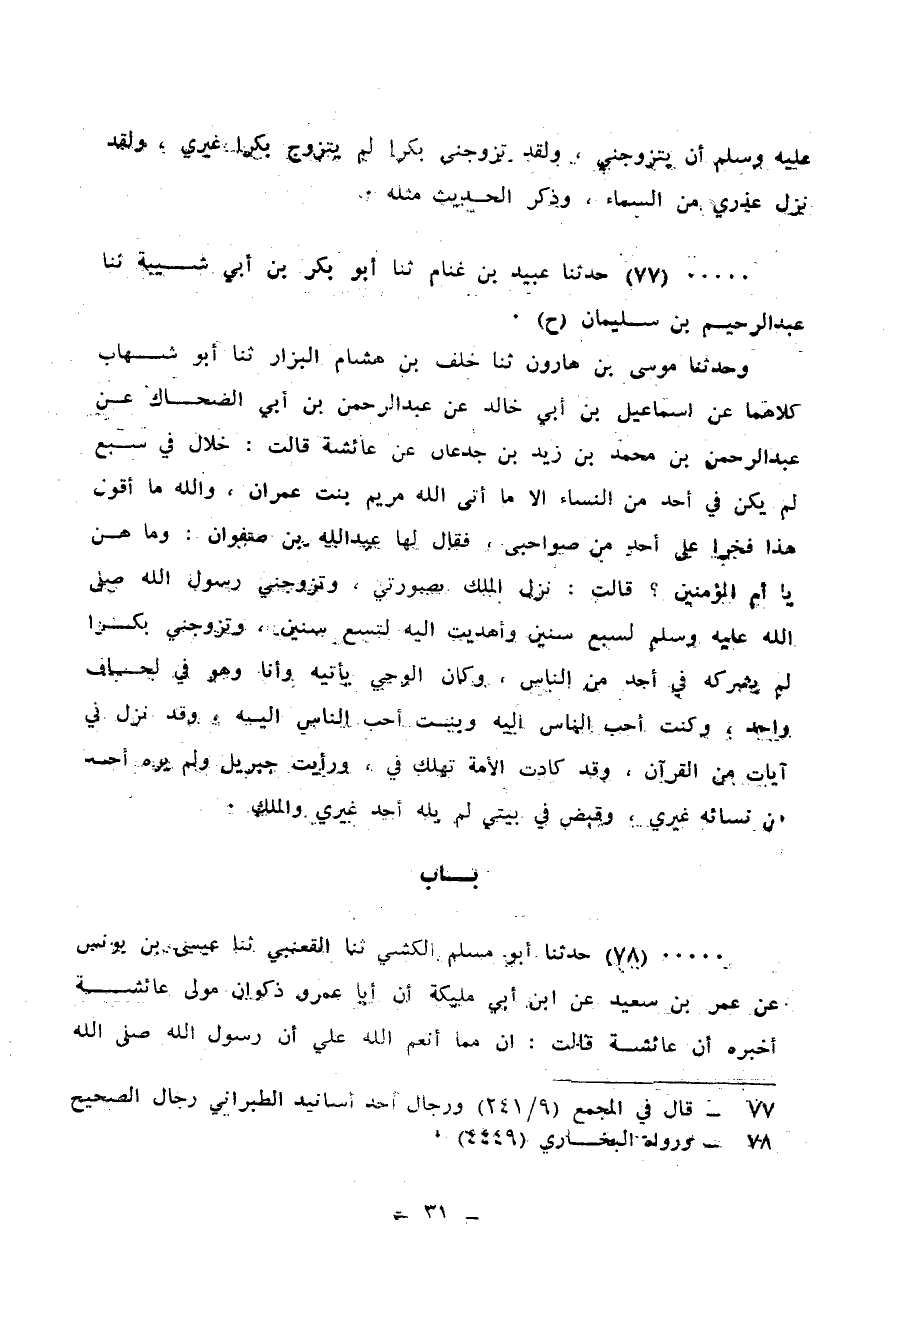 عليه وسلم أن يتزوجني ، ولقد تزوجني بكرا لم يتزوج بكرا غيري ، ولقد
نزل عذري من السماء ، وذكر الحديث مثله ٠
٠٠٠٠٠ (٧٧) حدثنا عبيد بن غنام ثنا أبو بكر بن أبي شيبة ثنا
عبدالرحيم بن سليمان (ح) ٠
وحدثنا موسى بن هارون ثنا خلف بن هشام البزار ثنا أبو شهاب
كلاهما عن اسماعيل بن أبي خالد عن عبدالرحمن بن أبي الضحاك عن
عبدالرحمن بن محمد بن زيد بن جدعان عن عائشة قالت : خلال في سبع
لم يكن في أحد من النساء الا ما أتى الله مريم بنت عمران ، والله ما أقول
هذا فخرا على أحد من صواحبي ، فقال لها عبدالله بن صفوان : وما هن
يا أم المؤمنين ؟ قالت : نزل الملك بصورتي ، وتزوجني رسول الله صلى
الله عليه وسلم لسبع سنين وأهديت اليه لتسع سنين ، وتزوجني بكرا
لم يشركه في أحد من الناس ، وكان الوحي يأتيه وأنا وهو في لحاف
واحد ، وكنت أحب الناس اليه وبنت أحب الناس اليه ، وقد نزل في
آيات من القرآن ، وقد كادت الأمة تهلك في ، ورأيت جبريل ولم يره أحد
من نسائه غيري ، وقبض في بيتي لم يله أحد غيري والملك ٠
باب
٠٠٠٠٠ (٧٨) حدثنا أبو مسلم الكشي ثنا القعنبي ثنا عيسى بن يونس
عن عمر بن سعيد عن ابن أبي مليكة أن أبا عمرو ذكوان مولى عائشة
أخبره أن عائشة قالت : ان مما أنعم الله علي أن رسول الله صلى الله
٧٧ ــ قال في المجمع (٢٤١/٩) ورجال أحد أسانيد الطبراني رجال الصحيح
٧٨ ــ ورواه البخاري (٤٤٤٩) ٠
ــ ٣١ ــ